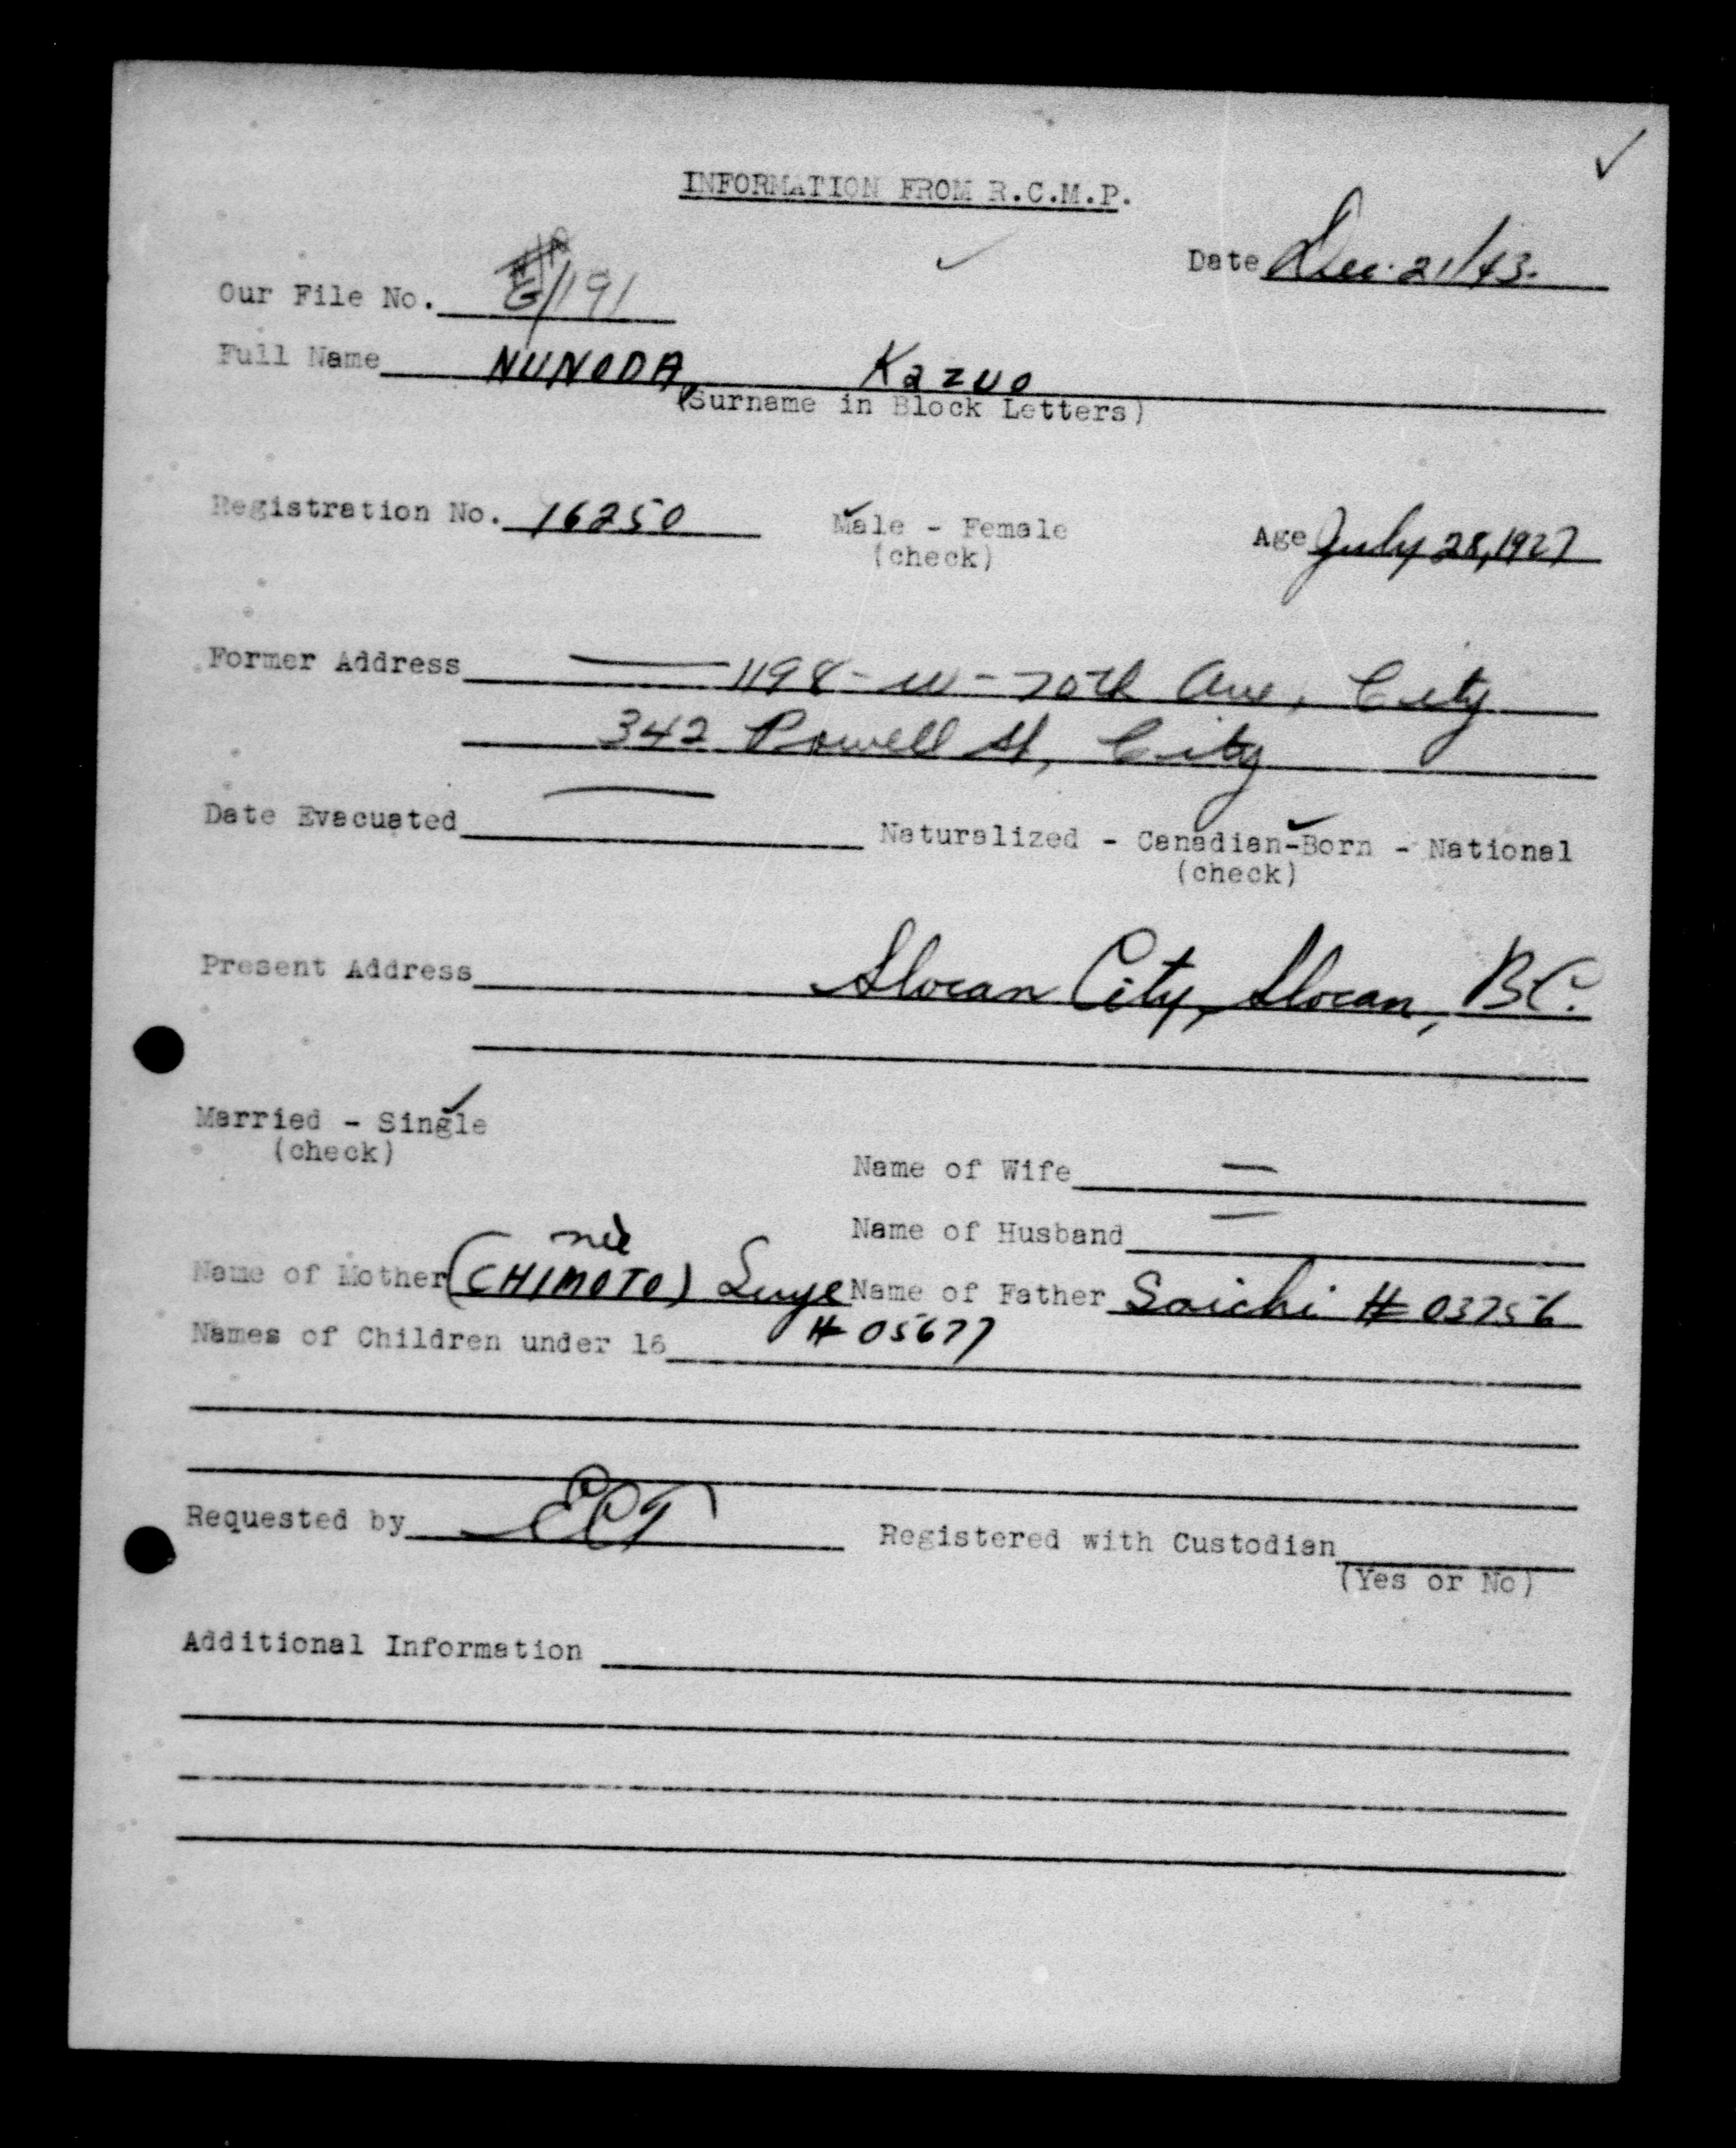 INFORMATION FROM R.C.M.P.
Date Dec. 21/43.
Our File No. /191
Full Name NUNODA, Kazuo
(Surname in Block Letters)
Registration No. 16250 Male - Female Age July 28, 1927
(check)
Former Address 1198 - W - 70th Ave, City
342 Powell St, City
Date Evacuated — Naturalized - Canadian-Born - National
(check)
Present Address Slocan City, Slocan, BC.
Married - Single
(check)
Name of Wife —
Name of Husband —
née
Name of Mother (CHIMOTO) Name of Father Saichi # 03756
# 05677
Names of Children under 16
Requested by Registered with Custodian
(Yes or No)
Additional Information